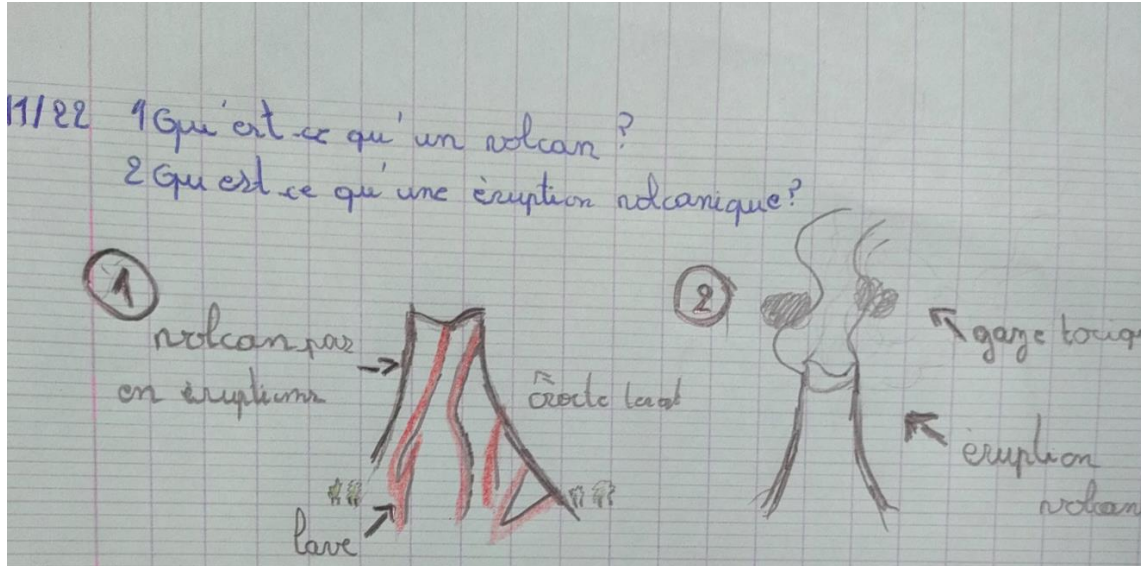 11/22 1 Qu'est-ce qu'un volcan?
2 Qu est-ce qu'une éruption volcanique?
1
volcan pas
en éruptions
lave
2
gaze toxiq
éruption
volcan